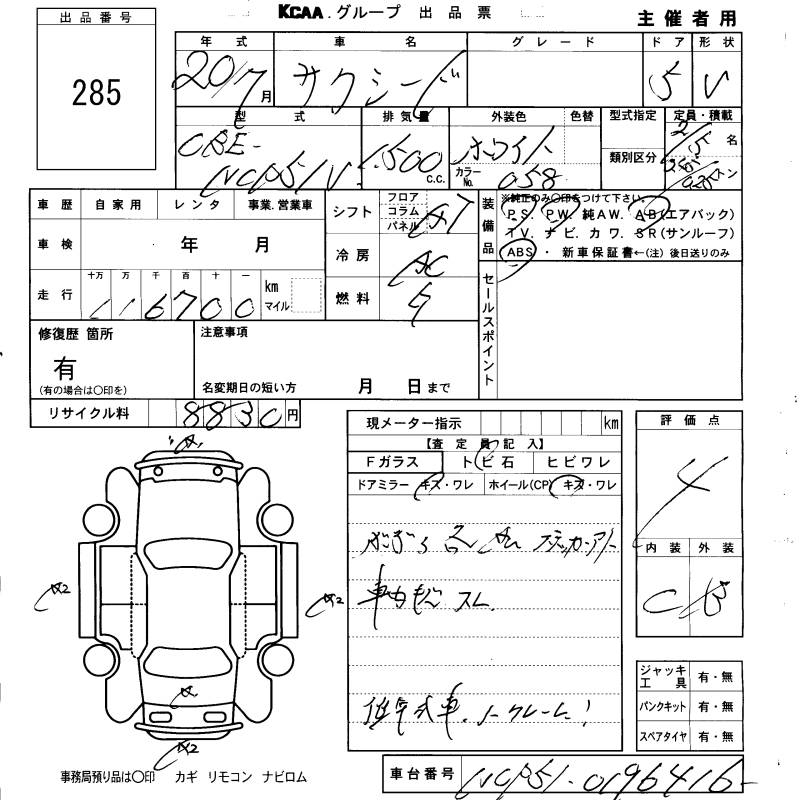 KCAA.グループ 出品票
主催者用
出品番号
285
年式 車名 グレード ドア 形状
20/7月 サクシード 5 V
型式 排気量 外装色 色替 型式指定 定員・積載
CBE-NCP51V 1500 C.C. ホワイト 類別区分 2/5名
カラーNo. 058 トン
車歴 自家用 レンタ 事業.営業車
車検 年 月
走行 十万 万 千 百 十 一 km マイル
116700
シフト フロア コラム パネル AT
冷房 AC
燃料 ガ
装備品 ※純正のみ〇印をつけて下さい。
PS. PW. 純AW. AB(エアバック)
TV. ナビ. カワ. SR(サンルーフ)
ABS ・ 新車保証書←(注) 後日送りのみ
セールスポイント
修復歴 箇所
有
(有の場合は〇印を)
注意事項
名変期日の短い方 月 日まで
リサイクル料 8830円
現メーター指示 km
【査定員記入】
Fガラス トビ石 ヒビワレ
ドアミラー キズ・ワレ ホイール(CP) キズ・ワレ
車内 スレ
低年式車.ノークレーム!
評価点
4
内装 外装
C B
ジャッキ工具 有・無
パンクキット 有・無
スペアタイヤ 有・無
事務局預り品は〇印 カギ リモコン ナビロム
車台番号 NCP51-0196416-